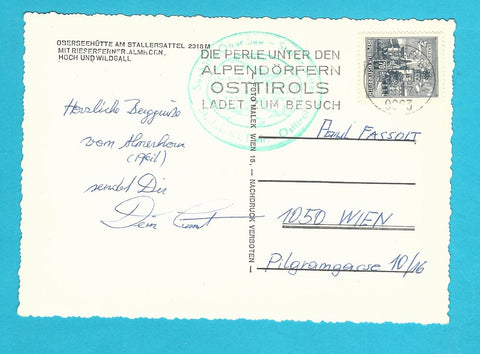 OBERSEEHÜTTE AM STALLERSATTEL 2016 M
MIT RIESERFERNER, ALMHORN,
HOCH UND WILDGALL
DIE PERLE UNTER DEN
ALPENDÖRFERN
OSTTIROLS
LADET ZUM BESUCH
Herzliche Berggrüße
vom Almerhorn
(Pfeil)
sendet Dir
Dein
FOTO MALEK, WIEN 15. — NACHDRUCK VERBOTEN —
Paul FASSOLT
1050 WIEN
Pilgramgasse 10/16